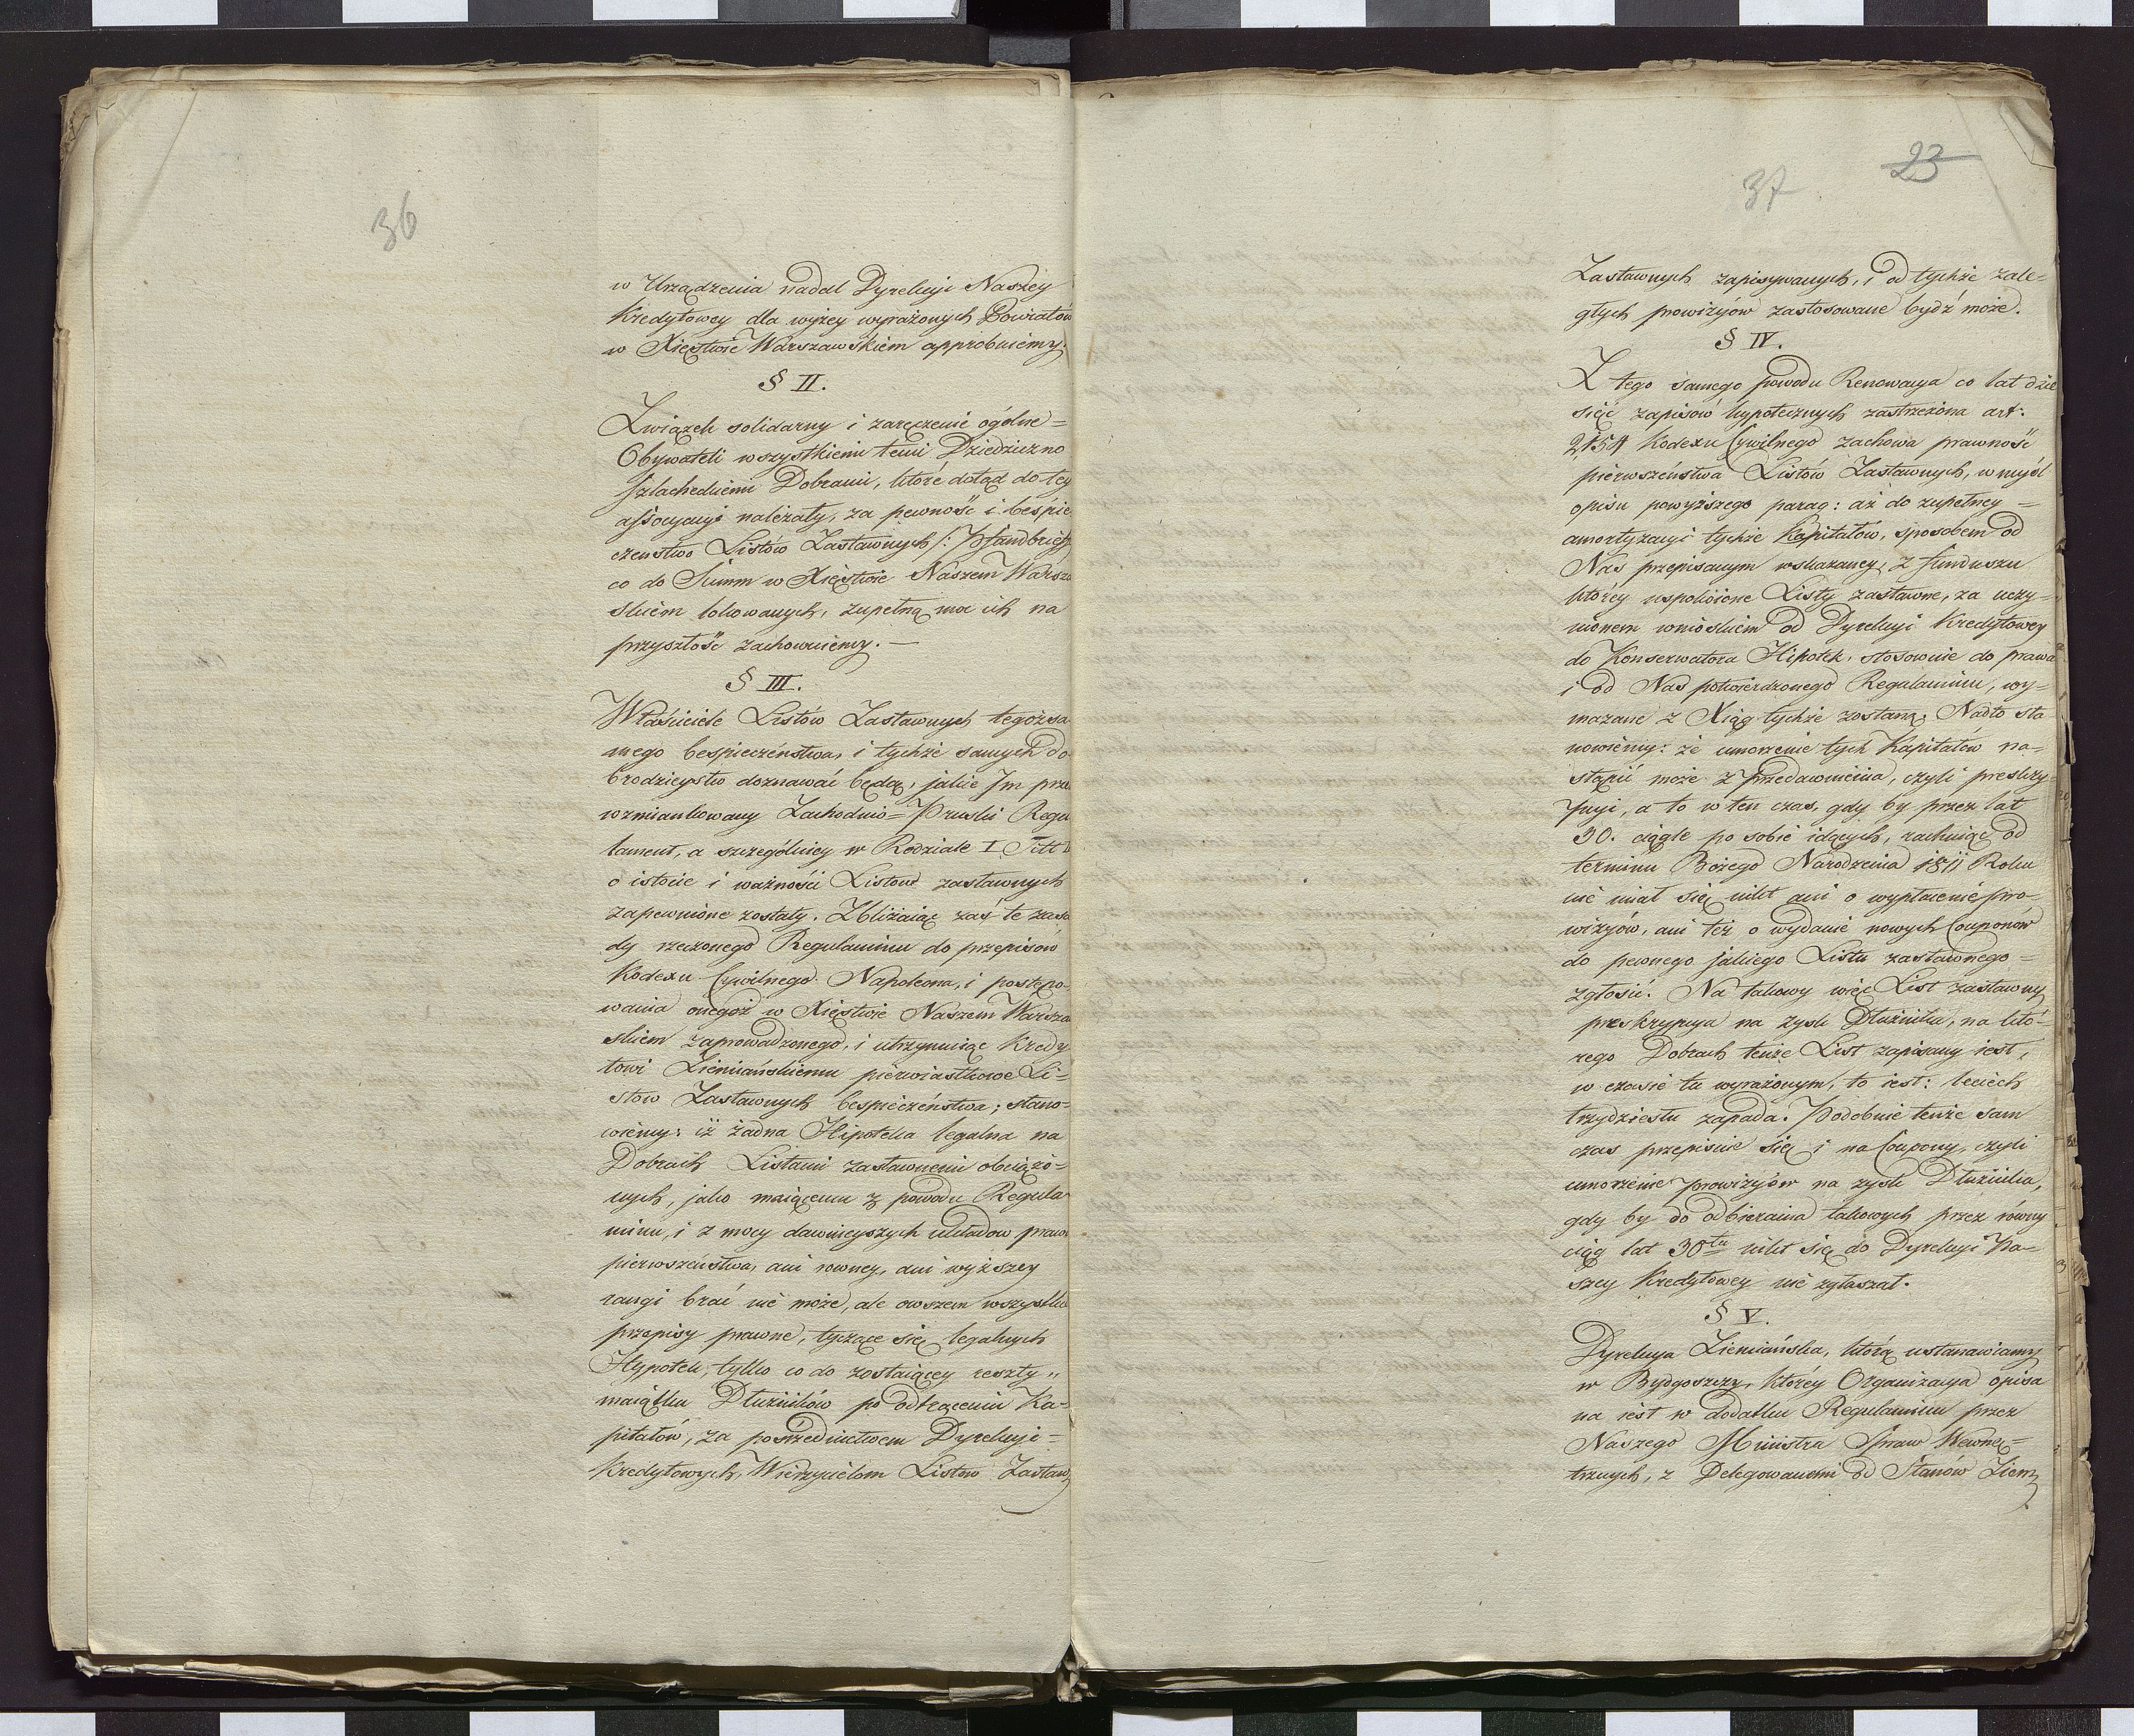 36
w Urządzenia nadal Dyrekcyi Naszey
Kredytowey dla wyżey wyrażonych Powiatów
w Xięstwie Warszawskiem approbuiemy.
§ II.
Związek solidarny i zaręczenie ogólne=
Obywateli wszystkiemi temi Dziedziczno
Szlacheckiemi Dobrami, które dotąd do tey
assocyacyi należały, za pewność i beśpie
czenstwo Listów Zastawnych /: Pfandbrieff
co do Summ w Xięstwie Naszem Warsza
skiem lokowanych, zupełną moc ich na
przyszłość zachowuiemy. —
§ III.
Właściciele Listów Zastawnych tegoż sa
mego bespieczeństwa, i tychże samych do
brodzieystw doznawać będą, jakie Im prze
wzmiankowany Zachodnio=Pruski Regu
lament, a szczególniey w Rodziale I Titt I
o istocie i ważności Listów zastawnych
zapewnione zostały. Zbliżaiąc zaś te zasa
dy rzeczonego Regulaminu do przepisow
Kodexu Cywilnego Napoleona, i postępo-
wania onegoż w Xięstwie Naszem Warsza
skiem zaprowadzonego, i utrzymuiąc Kredy
towi Ziemiańskiemu pierwiastkowe Li=
stow Zastawnych bespieczeństwa; stano=
wiemy: iż żadna Hipoteka legalna na
Dobrach Listami zastawnemi obciążo=
nych, jako maiącemu z powodu Regula
minu, i z mocy dawnieyszych układow prawo
pierwszeństwa, ani rowney, ani wyższey
rangi brać nie może, ale owszem wszystkie
przepisy prawne, tyczące się legalnych
Hypotek, tylko co do zostaiącey reszty "
maiątku Dłużników po odtrąceniu Ka=
pitałów, za pośrzednictwem Dyrekcyi=
Kredytowych, Wierzycielom Listow Zastaw
23
37
Zastawnych zapisywanych, i od tychże zale=
głych prowizyów zastosowane bydź może.
§ IV.
Z tego samego powodu Renowacya co lat dzie
sięć zapisów hypotecznych zastrzeżona art:
2154 Kodexu Cywilnego zachowa prawność
pierwszeństwa Listów Zastawnych, w myśl
opisu powyższego parag: aż do zupełney=
amortyzacyi tychże Kapitałów, sposobem od
Nas przepisanym wskazaney, z funduszu
którey uspokoione Listy zastawne, za uczy=
nionem wnioskiem od Dyrekcyi Kredytowey
do Konserwatora Hipotek, stosownie do prawa
i od Nas potwierdzonego Regulaminu, wy=
mazane z Xiąg tychże zostaną. Nadto sta
nowiemy: że umorzenie tych Kapitałów na=
stąpić może z przedawnienia, czyli preskry=
pcyi, a to w ten czas, gdy by przez lat
30. ciągle po sobie idących, rachuiąc od
terminu Bożego Narodzenia 1811 Roku
nie miał się nikt ani o wypłacenie pro=
wizyów, ani też o wydanie nowych Couponów
do pewnego jakiego Listu zastawnego=
zgłosić. Na takowy więc List zastawny
preskrypcya na zysk Dłużnika, na któ=
rego Dobrach tenże List zapisany iest,
w czasie tu wyrażonym, to iest: leciech
trzydziestu zapada. Podobnie tenże sam
czas przepisuie się i na Coupony, czyli
umorzenie prowizyów na zysk Dłużnika,
gdy by do odbierania takowych przez równy
ciąg lat 30tu nikt się do Dyrekcyi Na=
szey Kredytowey nie zgłaszał.
§ V.
Dyrekcya Ziemiańska, którą ustanawiamy
w Bydgoszczy, którey Organizacya opisa
na iest w dodatku Regulaminu przez
Naszego Ministra Spraw Wewnę=
trznych, z Delegowanemi od Stanów Ziem